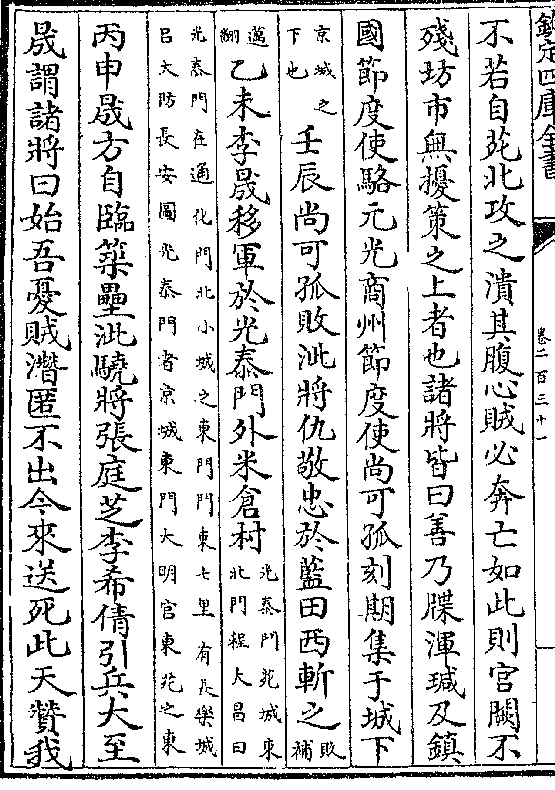 欽定四庫全書
卷二百三十一
不若自苑北攻之潰其腹心賊必奔亡如此則宫闕不
殘坊市無擾策之上者也諸將皆曰善乃牒渾瑊及鎮
國節度使駱元光商州節度使尚可孤刻期集于城下
京城之下也壬辰尚可孤敗泚將仇敬忠於藍田西斬之敗補
邁翻乙未李晟移軍於光泰門外米倉村光泰門苑城東北門程大昌曰
光泰門在通化門北小城之東門門東七里有長樂城
呂大防長安圖光泰門者京城東門大明宫東苑之東
丙申晟方自臨築壘泚驍將張庭芝李希倩引兵大至
晟謂諸將曰始吾憂賊潛匿不出今來送死此天贊我